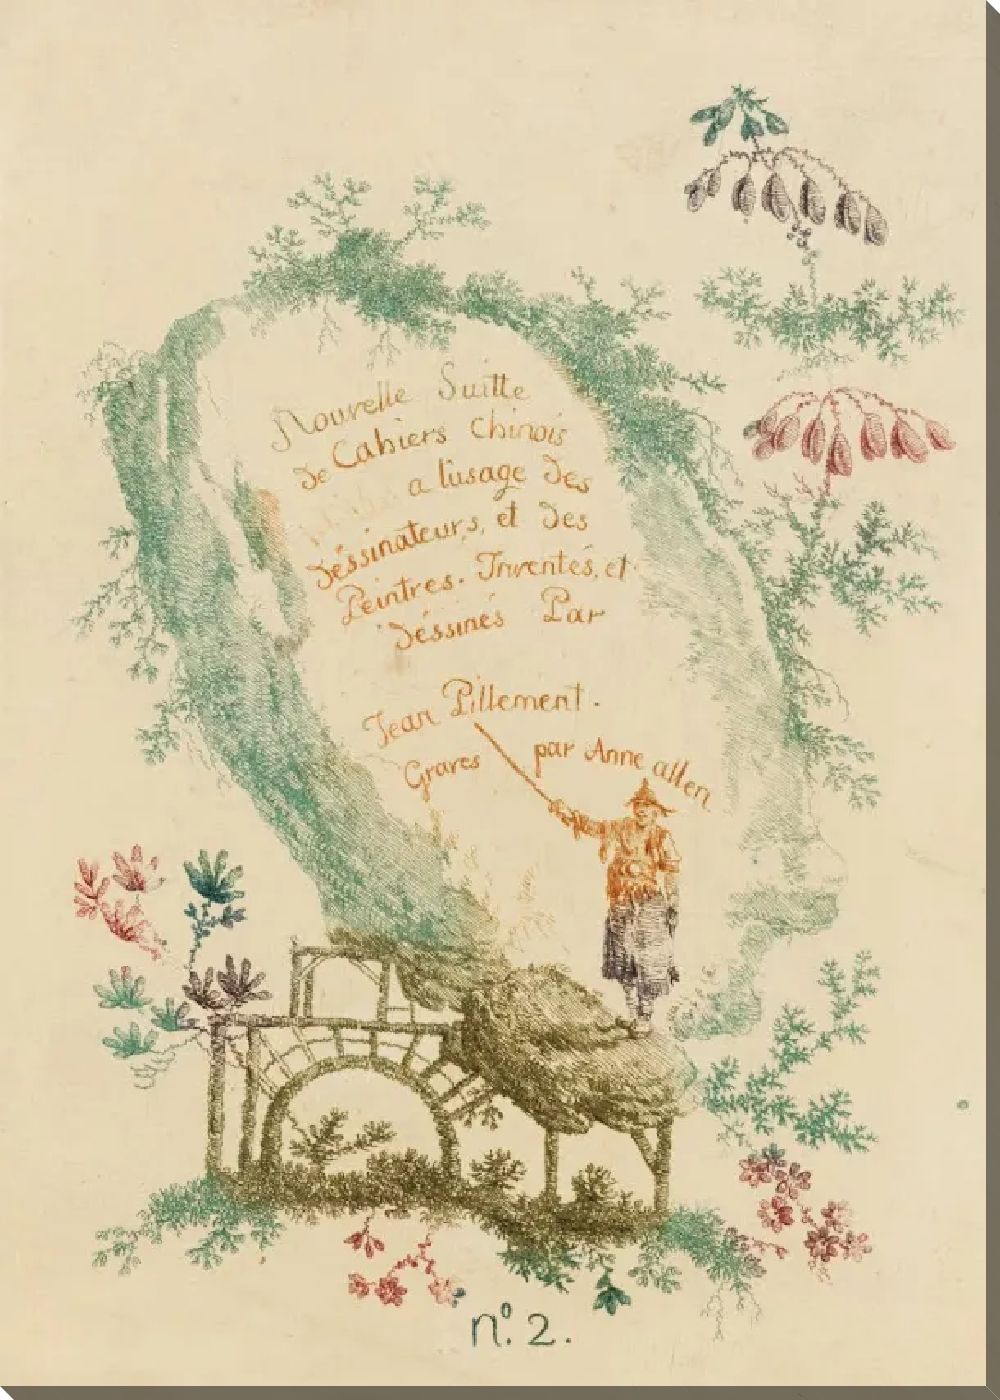 Nouvelle Suitte
de Cahiers Chinois
a l'usage des
déssinateurs, et des
Peintres. Inventés, et
déssinés Par
Jean Pillement.
Gravés par Anne allen
nº. 2.